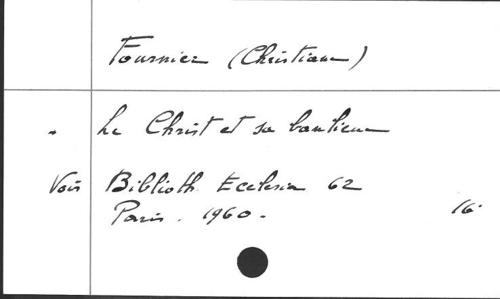 Fournier (Christiane)
Le Christ et sa banlieue
Voir Biblioth. Ecclesia 62
Paris. 1960. 16°